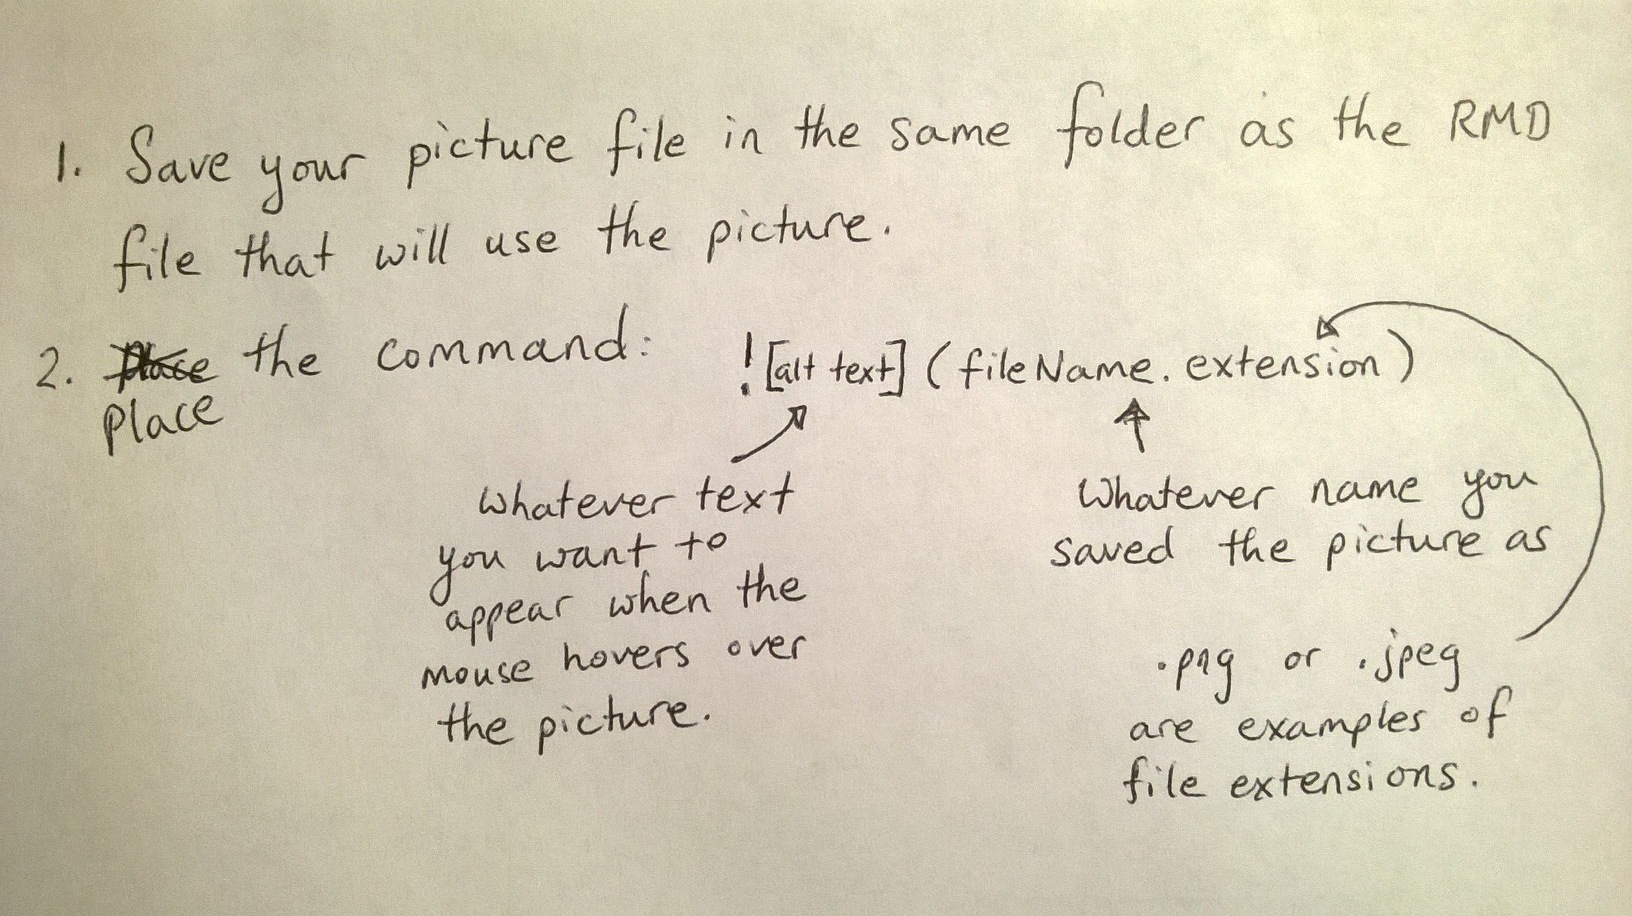 1. Save your picture file in the same folder as the RMD
file that will use the picture.
2. Place the command: ![alt text](fileName.extension)
Place
Whatever text
you want to
appear when the
mouse hovers over
the picture.
Whatever name you
saved the picture as
.png or .jpeg
are examples of
file extensions.